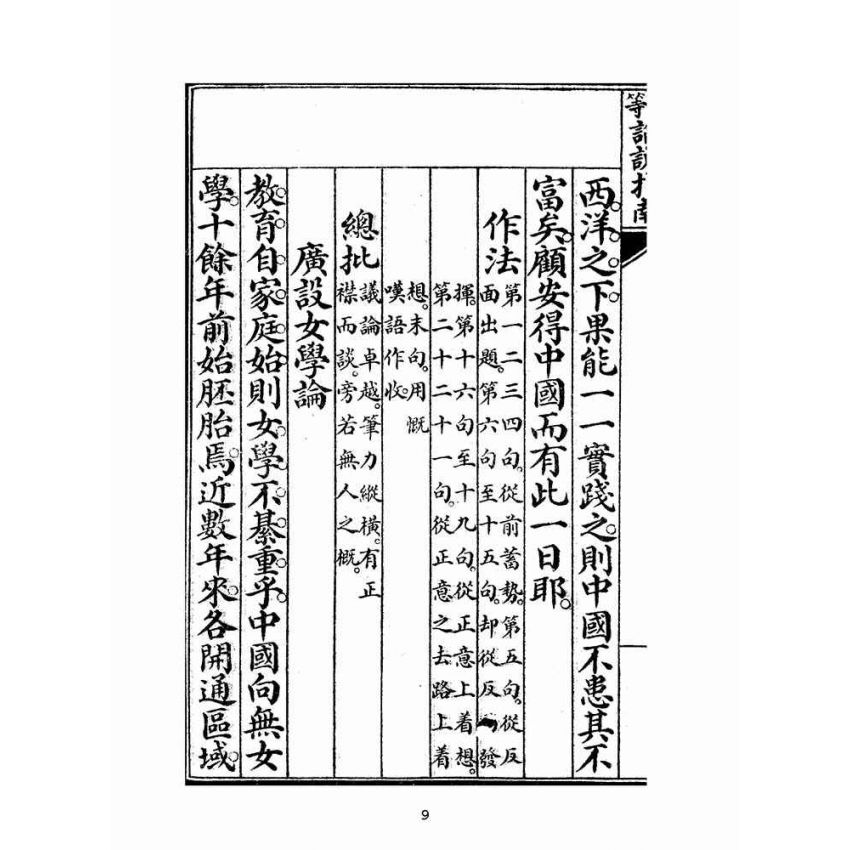 等論說指南
西。洋。之。下。果能一一實踐之。則中國不患其不
富矣。顧安得中國而有此一日耶。
作法
第一二三四句。從前蓄勢。第五句。從反
面出題。第六句至十五句。却從反發
揮。第十六句至十九句。從正意上着想。
第二十二十一句。從正意之去路上着
想。末句。用慨
嘆語作收。
總批
議論卓越。筆力縱橫。有正
襟而談。旁若無人之概。
廣設女學論
教。育。自。家。庭。始。則。女。學。不。綦。重。乎。中國向無女
學。十餘年前始胚胎焉。近數年來。各開通區域。
9